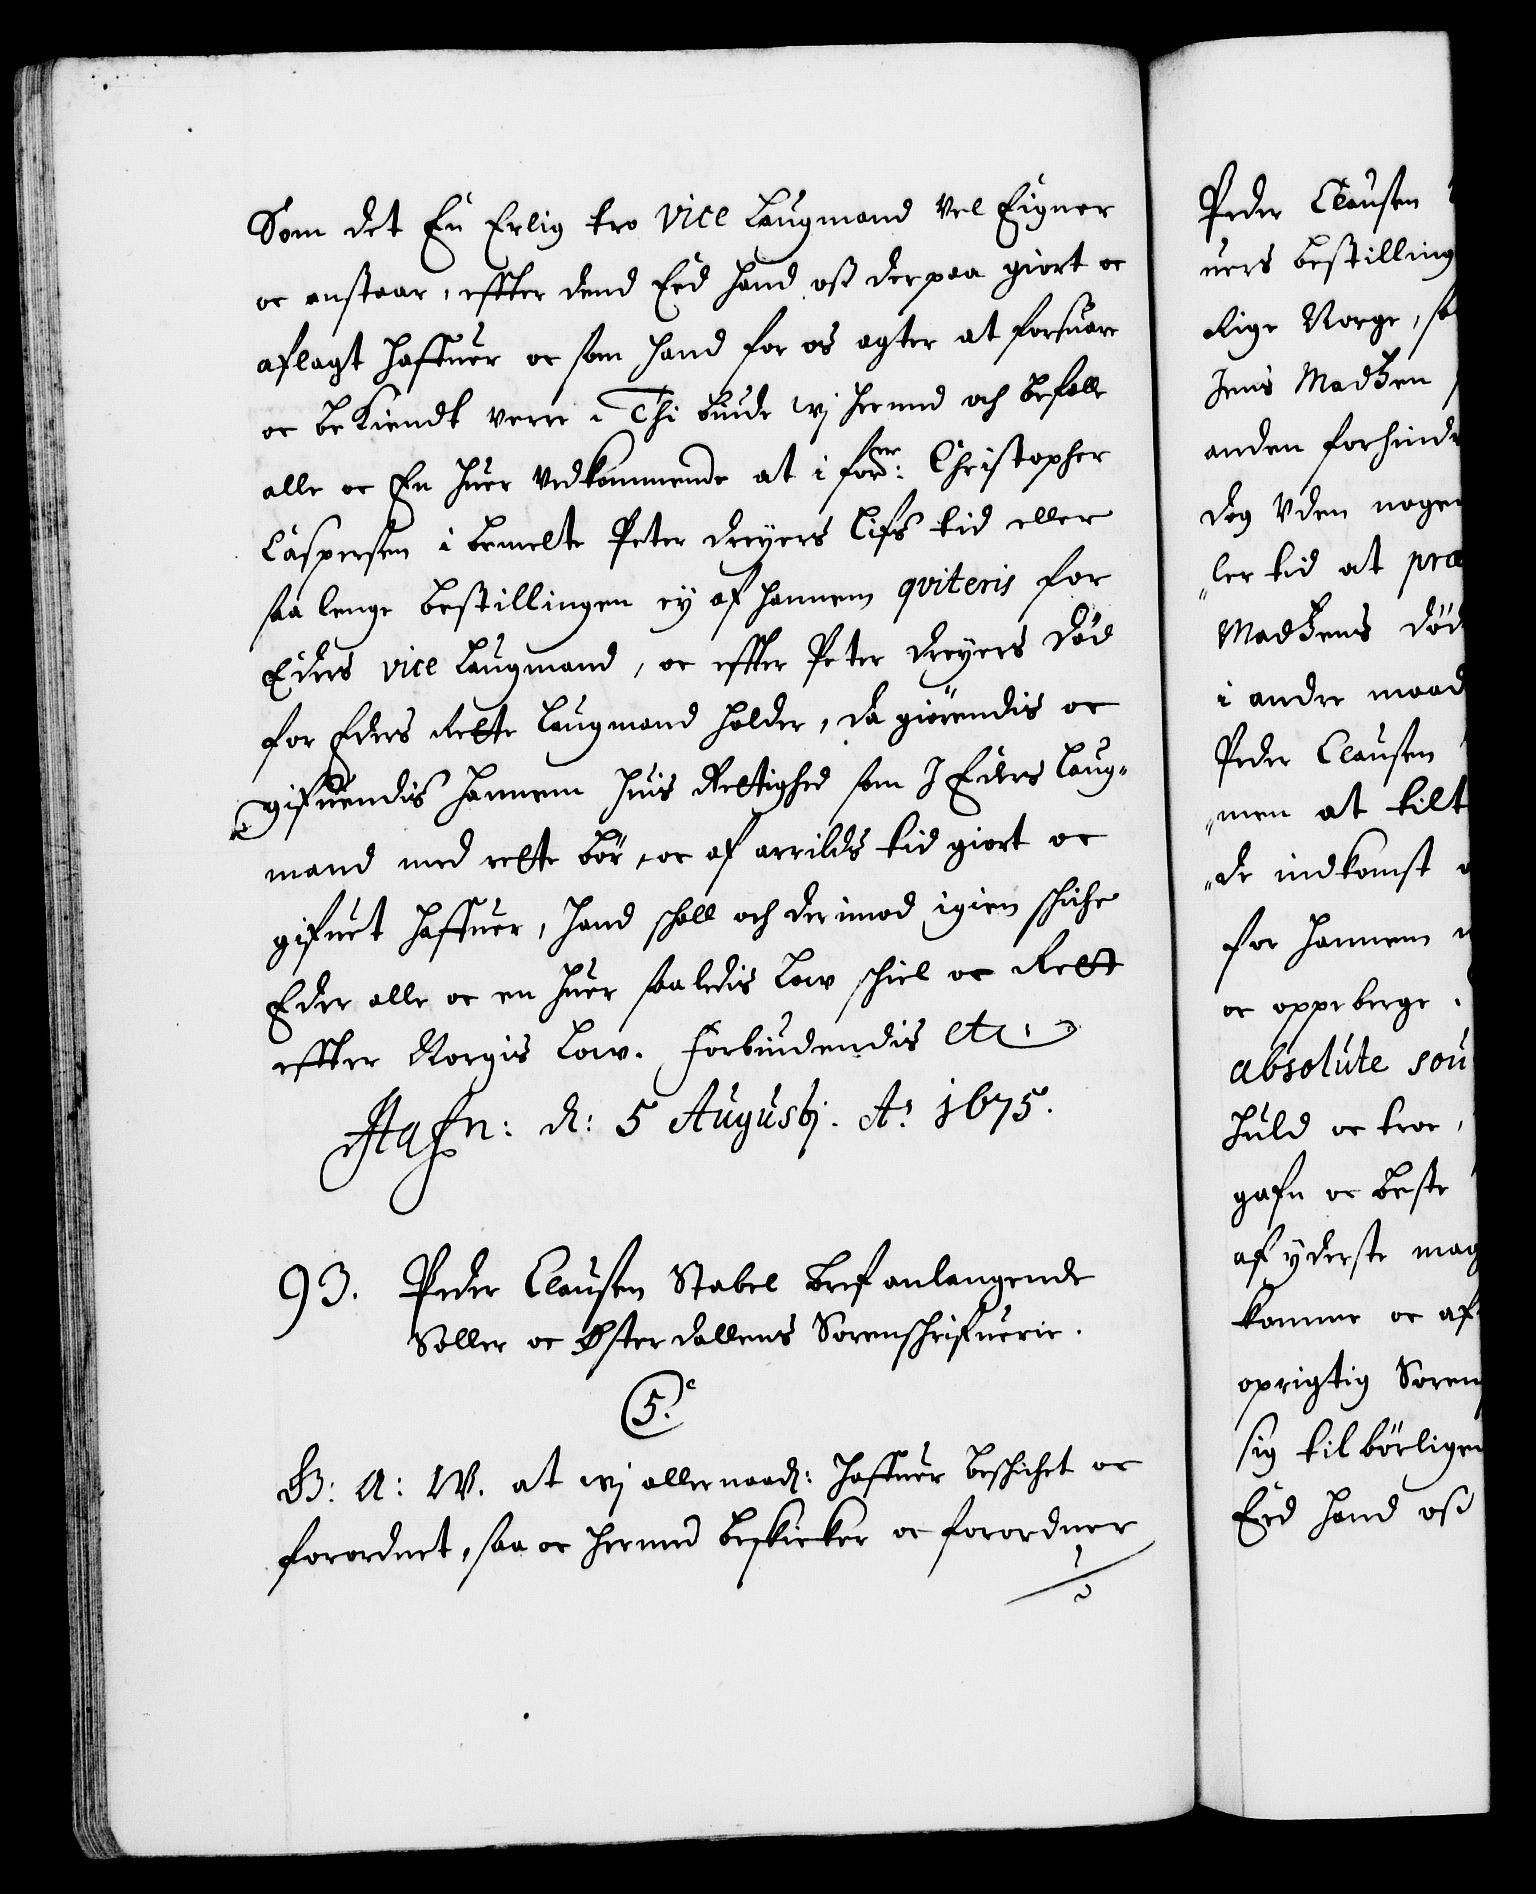 Som det En Erlig tro vice Laugmand vel Eigner
oc anstaar, effter dend Eed hand oß derpaa giort oc
aflagt haffuer oc som hand for os agter at forsuare
oc beKiendt were. Thi biude wj hermed och befalle
alle oc En huer vedkommende at i forne: Christopher
Caspersen i bemelte Peter Dreyers Lifs tid eller
saa lenge bestillingen ey af hannem qviteris for
Eders vice Laugmand, oc effter Peter Dreyers Död
for Eders Rette Laugmand holder, da giörendis oc
gifuendis hannem huis Rettighed som I Eders Laug-
mand med rette bör, oc af arrilds tid giort oc
gifuet haffuer, hand schall och derimod igien schiche
Eder alle oc en huer saaledis Low schiel oc Rett
effter Norgis Low. Forbindendis etc.
Hafn: d: 5 Augustj. Ao 1675.
93. Peder Clausen Stabel bref anlangende
Soller oc Østerdallens Sorenschrifuerie.
5.
G: A: W. at wj allernaad: haffuer beschichet oc
forordnet, saa oc hermed beskicker oc forordner
Peder Clausen
uers bestilling
Rige Norge, so
Jens Madtzen
anden forhind
dog Uden nogen
ler tid at præ
Madtzens död
i andre maad
Peder Clausen
men at tilt
de indkomst
for hannem
oc oppeberge.
absolute sou
huld oc troe,
gafn oc beste
af yderste mag
komme oc af
oprigtig Soren
sig tilbörligen
Eed hand oß